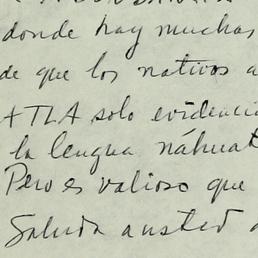 donde hay muchas
de que los nativos a
ATLA solo evidenci
la lengua náhuat
Pero es valioso que
Saluda a usted